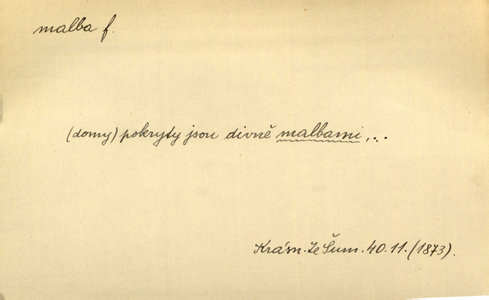 malba f.
(domy) pokryty jsou divně malbami,..
Krásn. Ze Šum. 40.11. (1873).